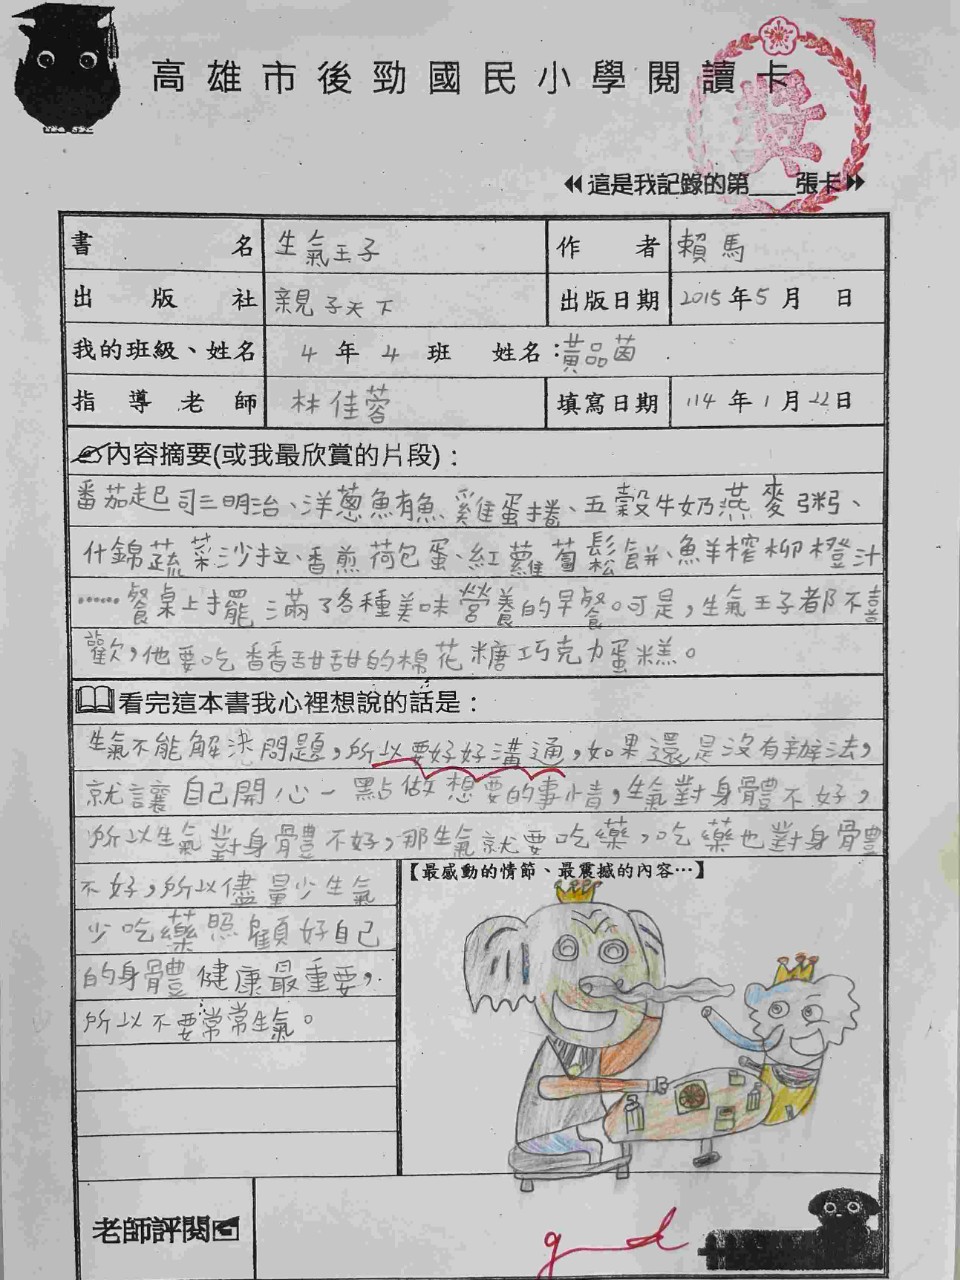 高雄市後勁國民小學閱讀卡
獎
這是我記錄的第____張卡
書名 生氣王子 作者 賴馬
出版社 親子天下 出版日期 2015年5月 日
我的班級、姓名 4年4班 姓名:黃品茵
指導老師 林佳蓉 填寫日期 114年1月22日
內容摘要(或我最欣賞的片段):
番茄起司三明治、洋蔥鮪魚雞蛋捲、五穀牛奶燕麥粥、
什錦蔬菜沙拉、香煎荷包蛋、紅蘿蔔鬆餅、鮮榨柳橙汁
……餐桌上擺滿了各種美味營養的早餐。可是,生氣王子都不喜
歡,他要吃香香甜甜的棉花糖巧克力蛋糕。
看完這本書我心裡想說的話是:
生氣不能解決問題,所以要好好溝通,如果還是沒有辦法,
就讓自己開心一點做想要的事情,生氣對身體不好,
所以生氣對身體不好,那生氣就要吃藥,吃藥也對身體
不好,所以儘量少生氣
少吃藥照顧好自己
的身體健康最重要,
所以不要常常生氣。
【最感動的情節、最震撼的內容…】
老師評閱
good